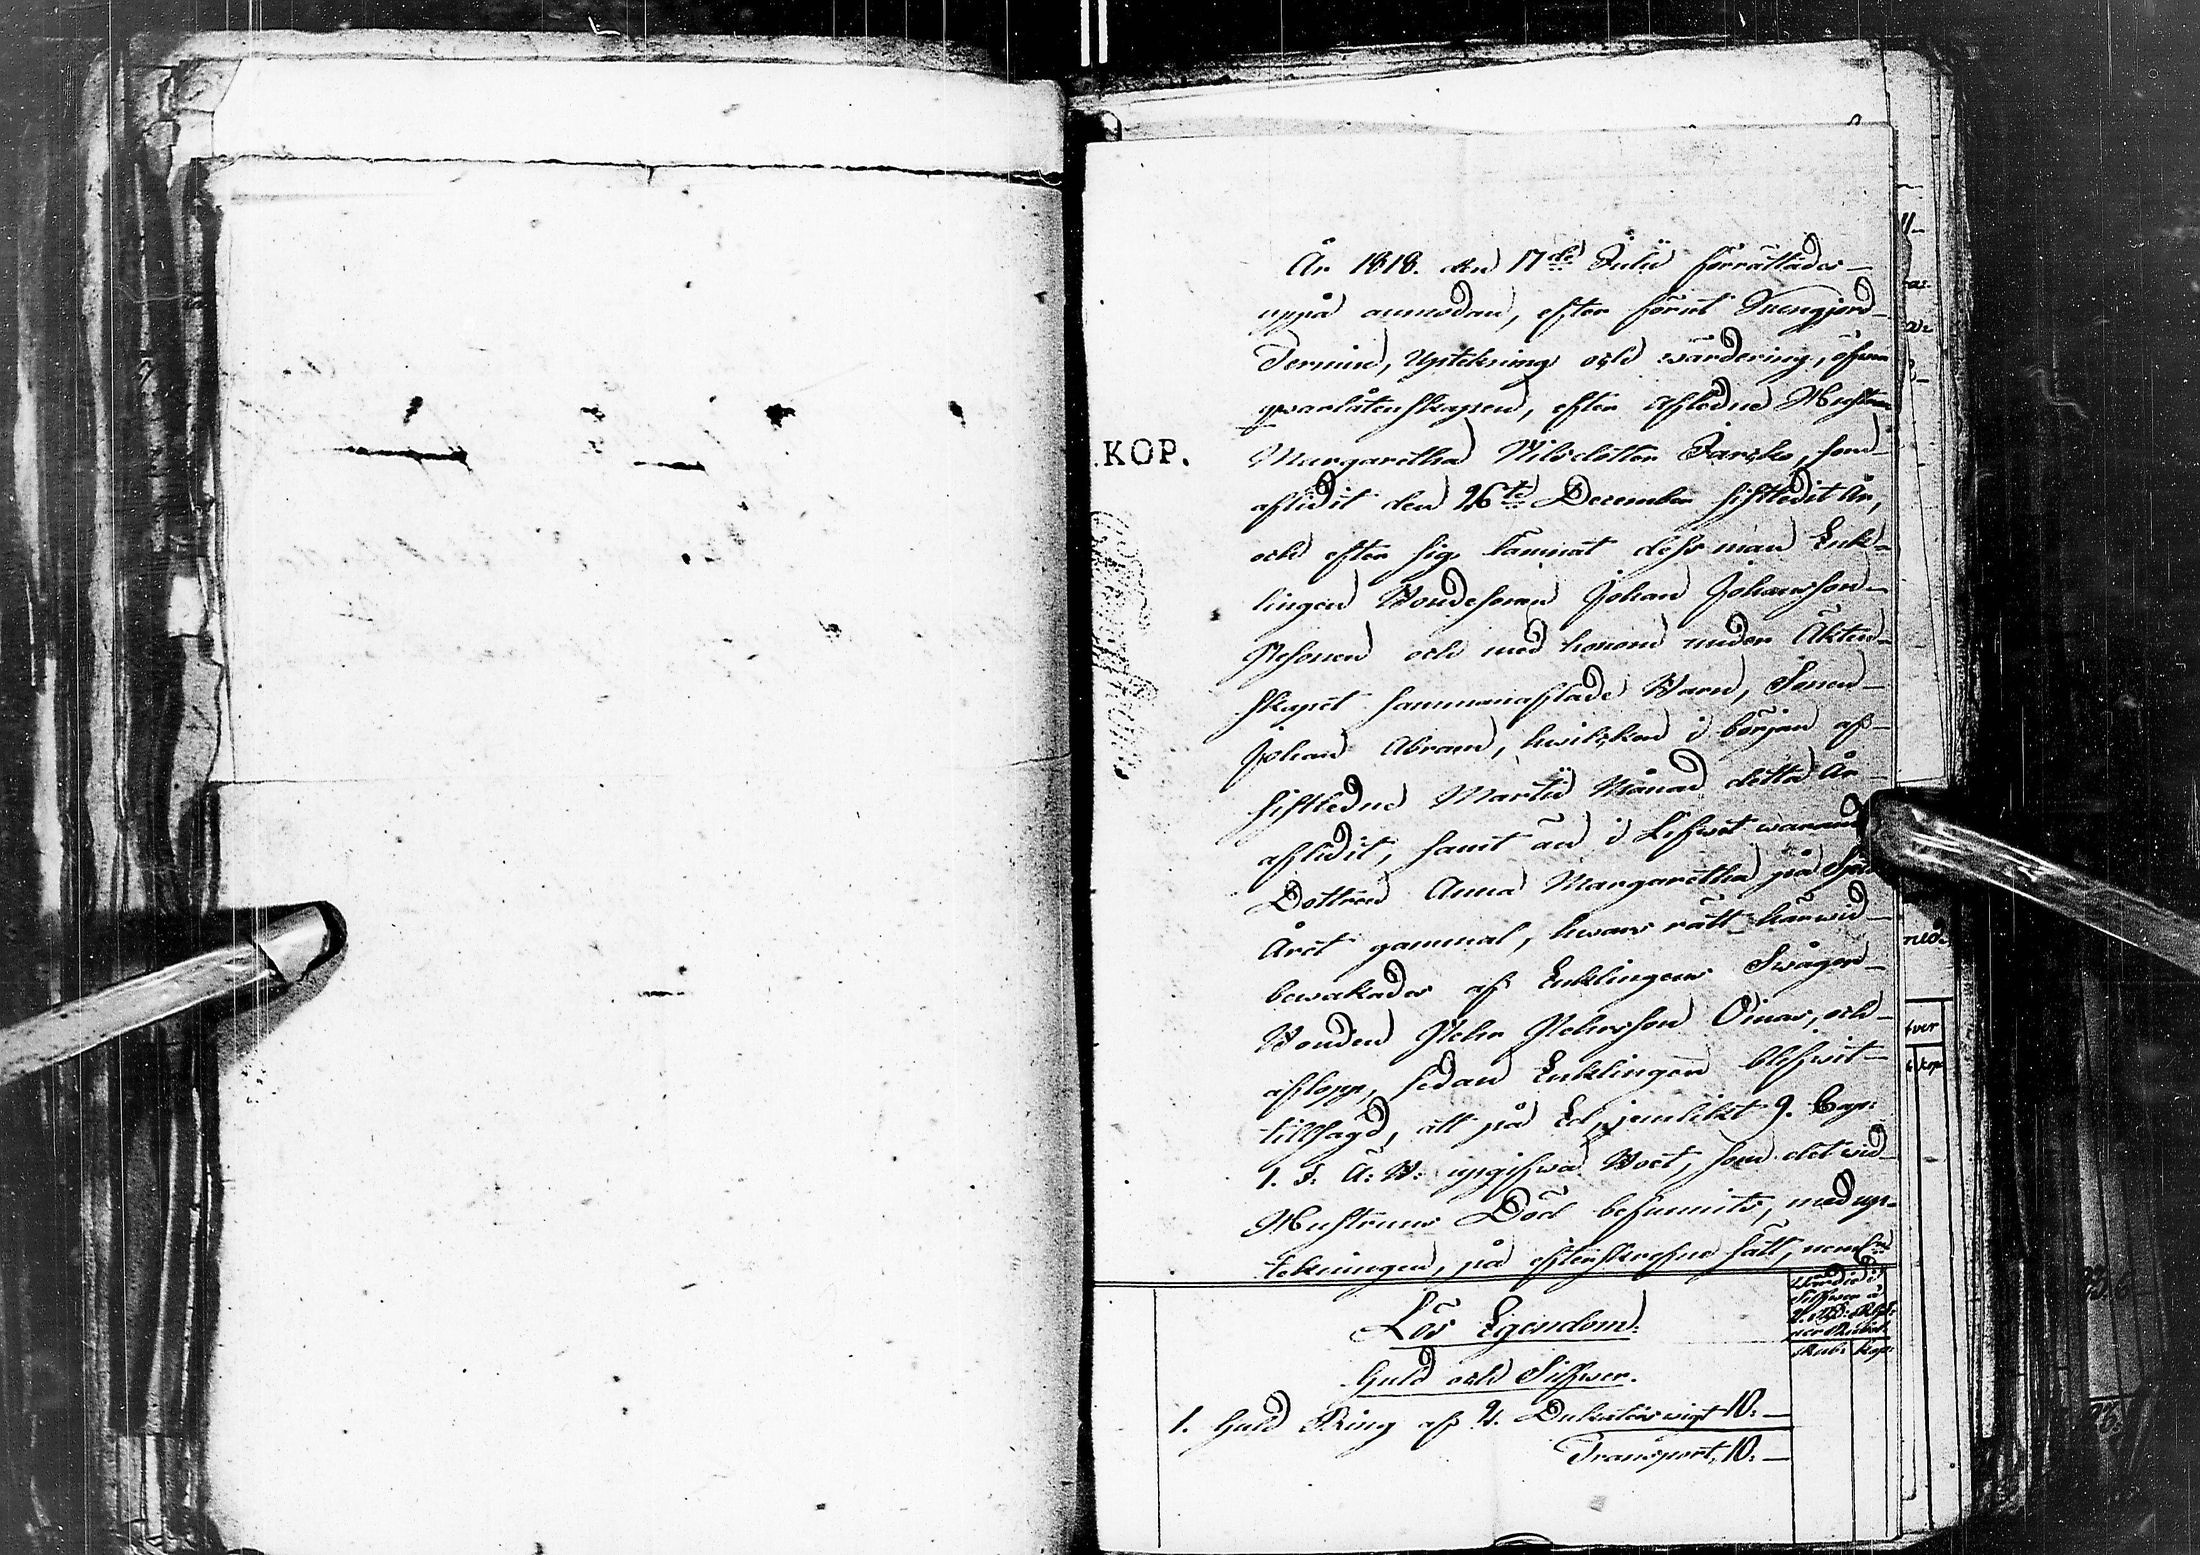 År 1818. den 17de Julii förrättades
uppå anmodan, efter förut Kungjord
Termin, Uptekning och wärdering, öfwer
qwarlåtenskapen, efter Afledne Hustru
KOP.
Margaretha Nilsdotter Jarsko, som
aflidit den 26te December sistledit År,
och efter sig lämnat dess man Enk-
lingen Bondesonen Johan Johansson
och med honom under Äkten-
skapet sammanaflade Barn, Sonen
Johan Abram, hwilcken i början af
sistledne Martii Månad detta År
aflidit, samt än i Lifwet warande
Dottren Anna Margaretha på
Året gammal, hwars rätt härwid
bewakades af Enklingens Swåger
Bonden Petter Pettersson Oinas, och
aflopp, sedan Enklingen blifwit
tillsagd, att på Ed, jemlikt 9. Cap:
1. §. Ä: B: upgifwa Boet, som det wid
Hustruns Död befunnits, med up-
tekningen, på efterskrefne sätt, nemln
Wärdie i
Silfwer à
Rub: Kop:
Lös Egendom.
Guld och Silfwer.
1. Guld Ring af 2. Dukaters wigt 10. —
Transport, 10. —